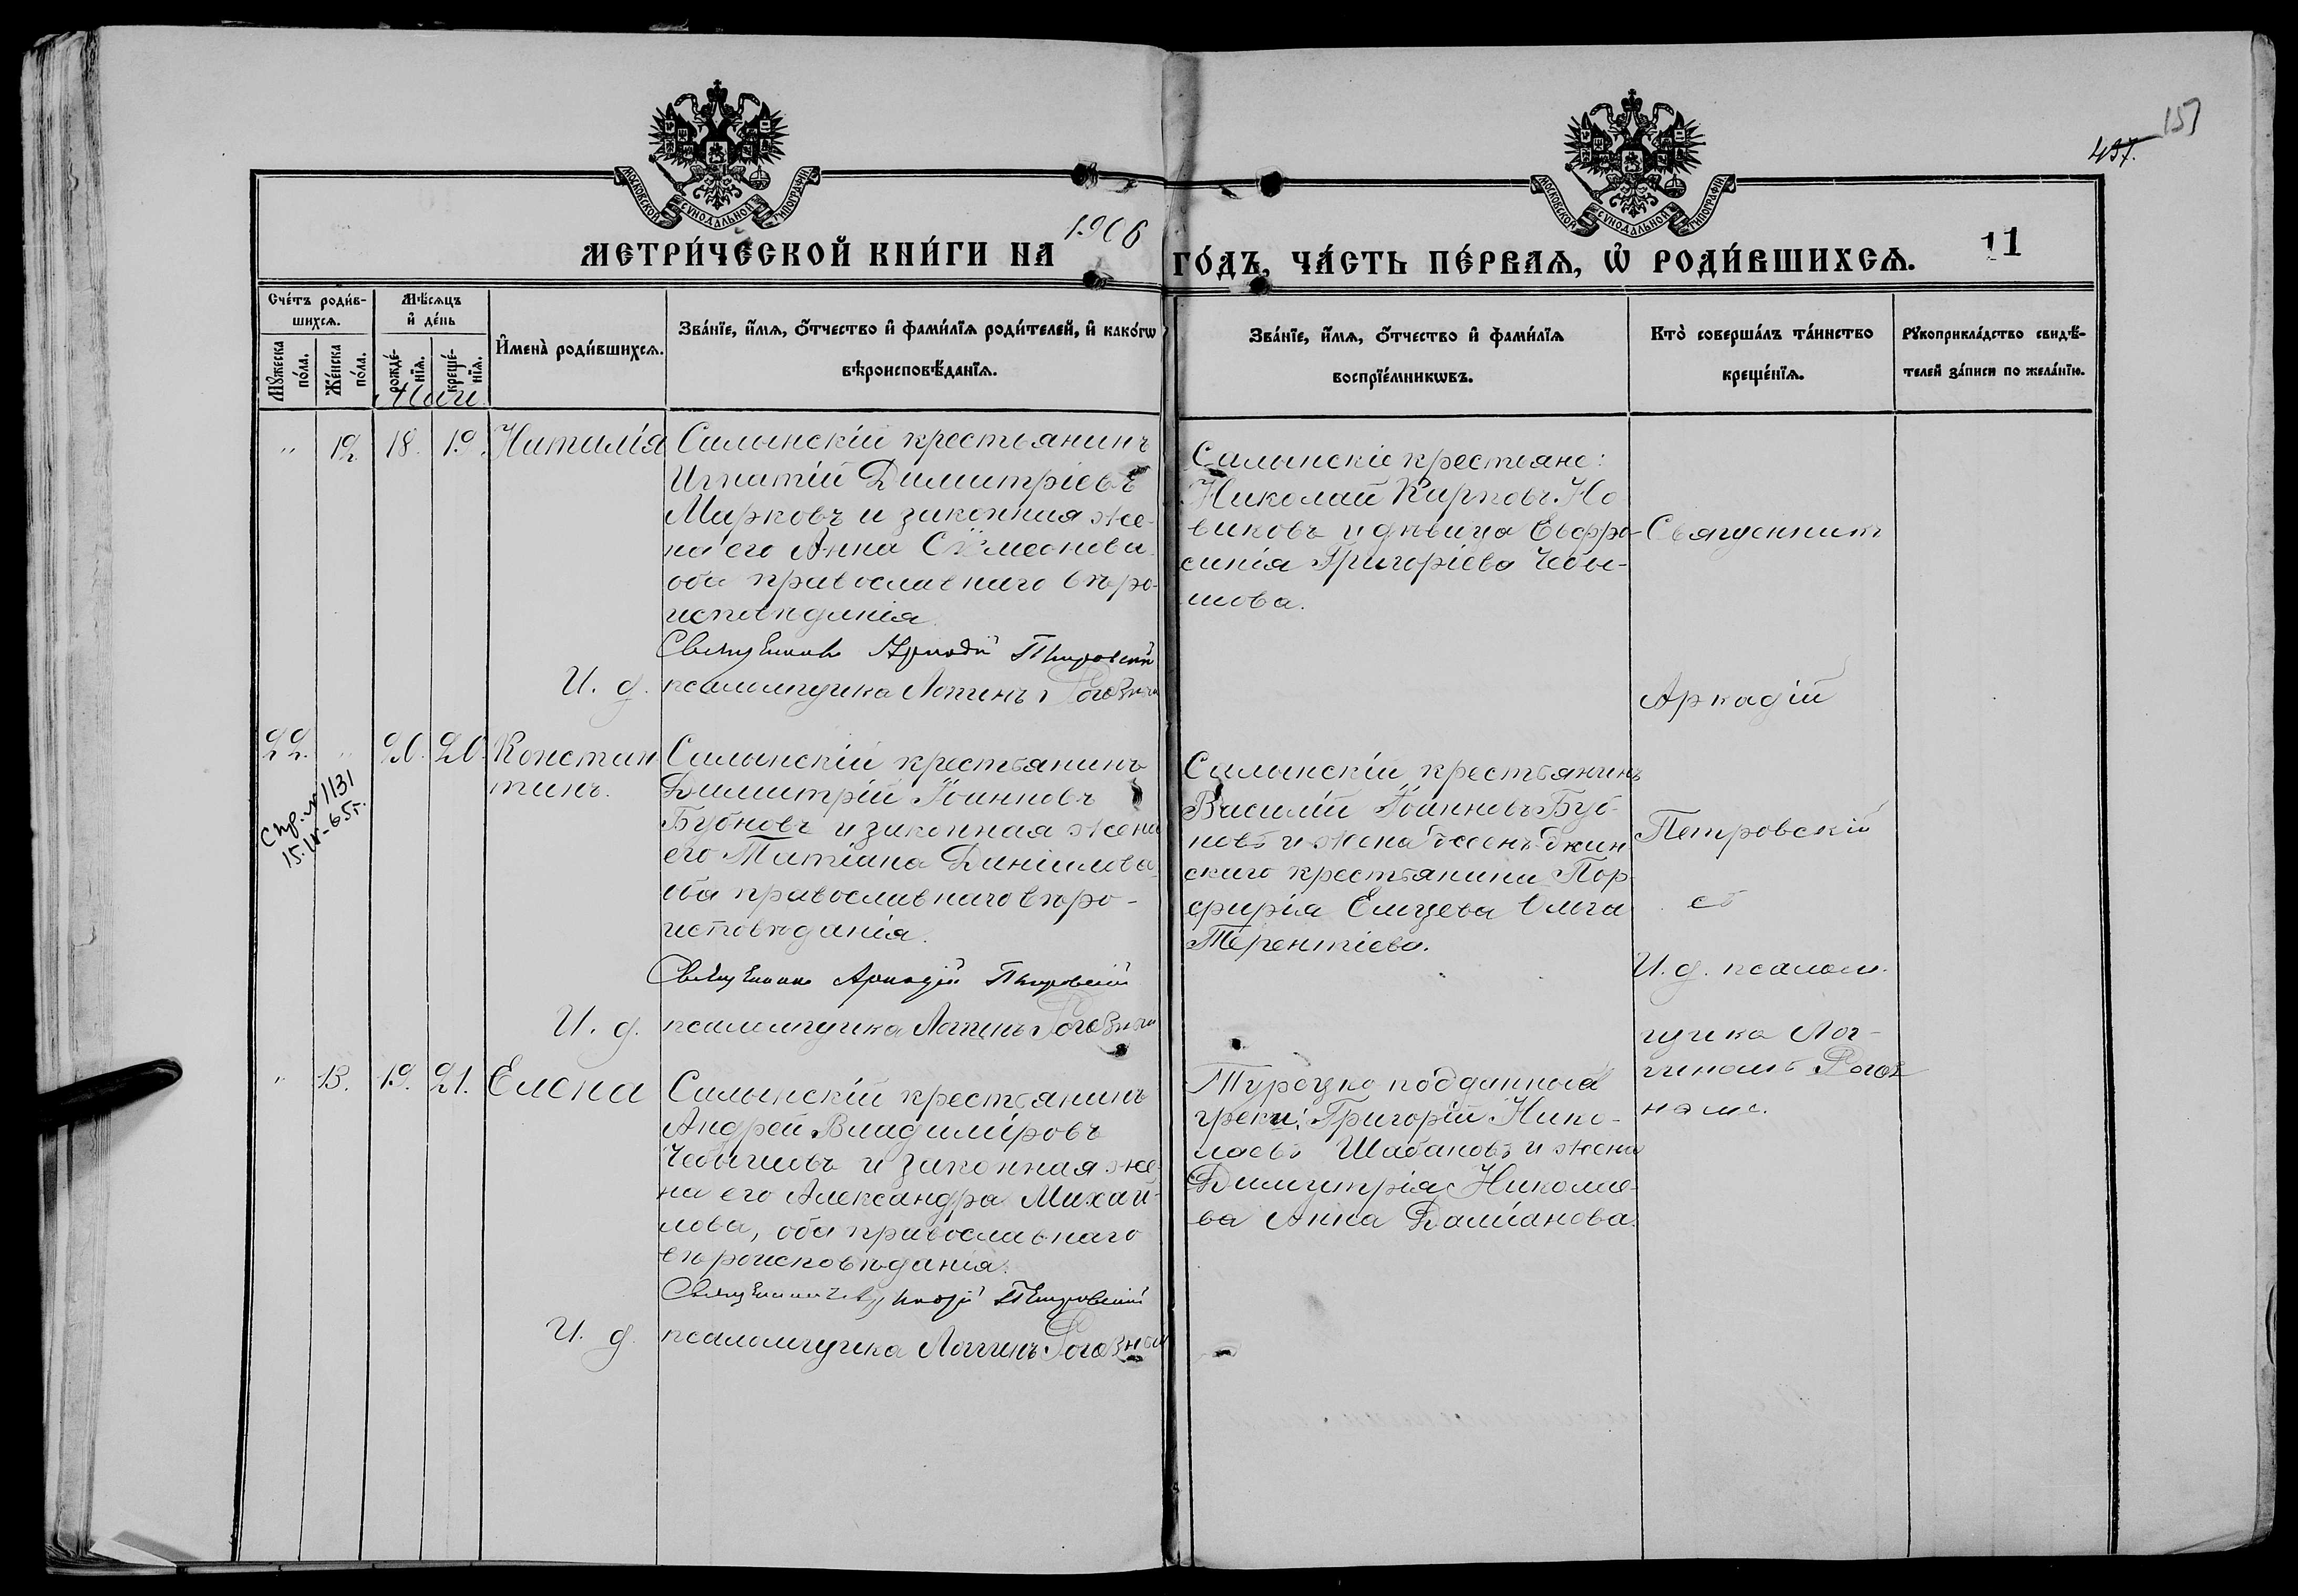 МОСКОВСКОЙ СѴНОДАЛЬНОЙ ТИПОГРАФІИ
МОСКОВСКОЙ СѴНОДАЛЬНОЙ ТИПОГРАФІИ
157
457.
МЕТРИ́ЧЕСКОЙ КНИ́ГИ НА 1906 ГО́ДЪ, ЧА́СТЬ ПЕ́РВАѦ, Ѡ҆ РОДИ́ВШИХСѦ. 11
Сче́тъ роди́в-
шихсѧ.
Мꙋ́жеска
по́ла.
Же́нска
по́ла.
Мѣ́сѧцъ
и҆ де́нь
рожде́-
нїѧ.
креще́-
нїѧ.
И҆мена̀ роди́вшихсѧ.
Зва́нїе, и҆́мѧ, ѻ҆́тчество и҆ фами́лїѧ роди́телей, и҆ како́гѡ
вѣроисповѣ́данїѧ.
Зва́нїе, и҆́мѧ, ѻ҆́тчество и҆ фами́лїѧ
воспрїе́мникѡвъ.
Кто̀ соверша́лъ та́инство
креще́нїѧ.
Рꙋкоприкла́дство свидѣ́-
телей за́писи по жела́нїю.
Май
" 12. 18. 19. Наталія
Салынскій крестьянинъ
Игнатій Димитріевъ
Марковъ и законная же-
на его Анна Симеонова
оба православнаго вѣро-
исповѣданія
Священникъ Аркадій Петровскій
И. д. псаломщика Логинъ
Салынскіе крестьяне:
Николай Карповъ Но
виковъ и дѣвица Евфро-
синія Григоріева Чебы-
шова.
Священникъ
Аркадій
Петровскій
съ
И. д. псалом-
щика Лог-
гиномъ
22. " 20. 20. Констан
тинъ.
Спр. № 1131
15.IV-65г.
Салынскій крестьянинъ
Димитрій Іоанновъ
Бубновъ и законная жена
его Татіана Даніилова
оба православнаго вѣро-
исповѣданія.
Священникъ Аркадій Петровскій
И. д. псаломщика Логгинъ
Салынскій крестьянинъ
Василій Іоанновъ Буб-
новъ и жена
скаго крестьянина Пор-
фирія Елицева Ольга
Терентіева.
" 13. 19. 21. Елена
Салынскій крестьянинъ
Андрей Владиміровъ
Чебышовъ и законная же-
на его Александра Михай-
лова, оба православнаго
вѣроисповѣданія.
Священникъ Аркадій Петровскій
И. д. псаломщика Логгинъ
Турецко подданные
греки: Григорій Нико-
лаевъ Шабановъ и жена
Димитрія Николае-
ва Анна Даміанова.